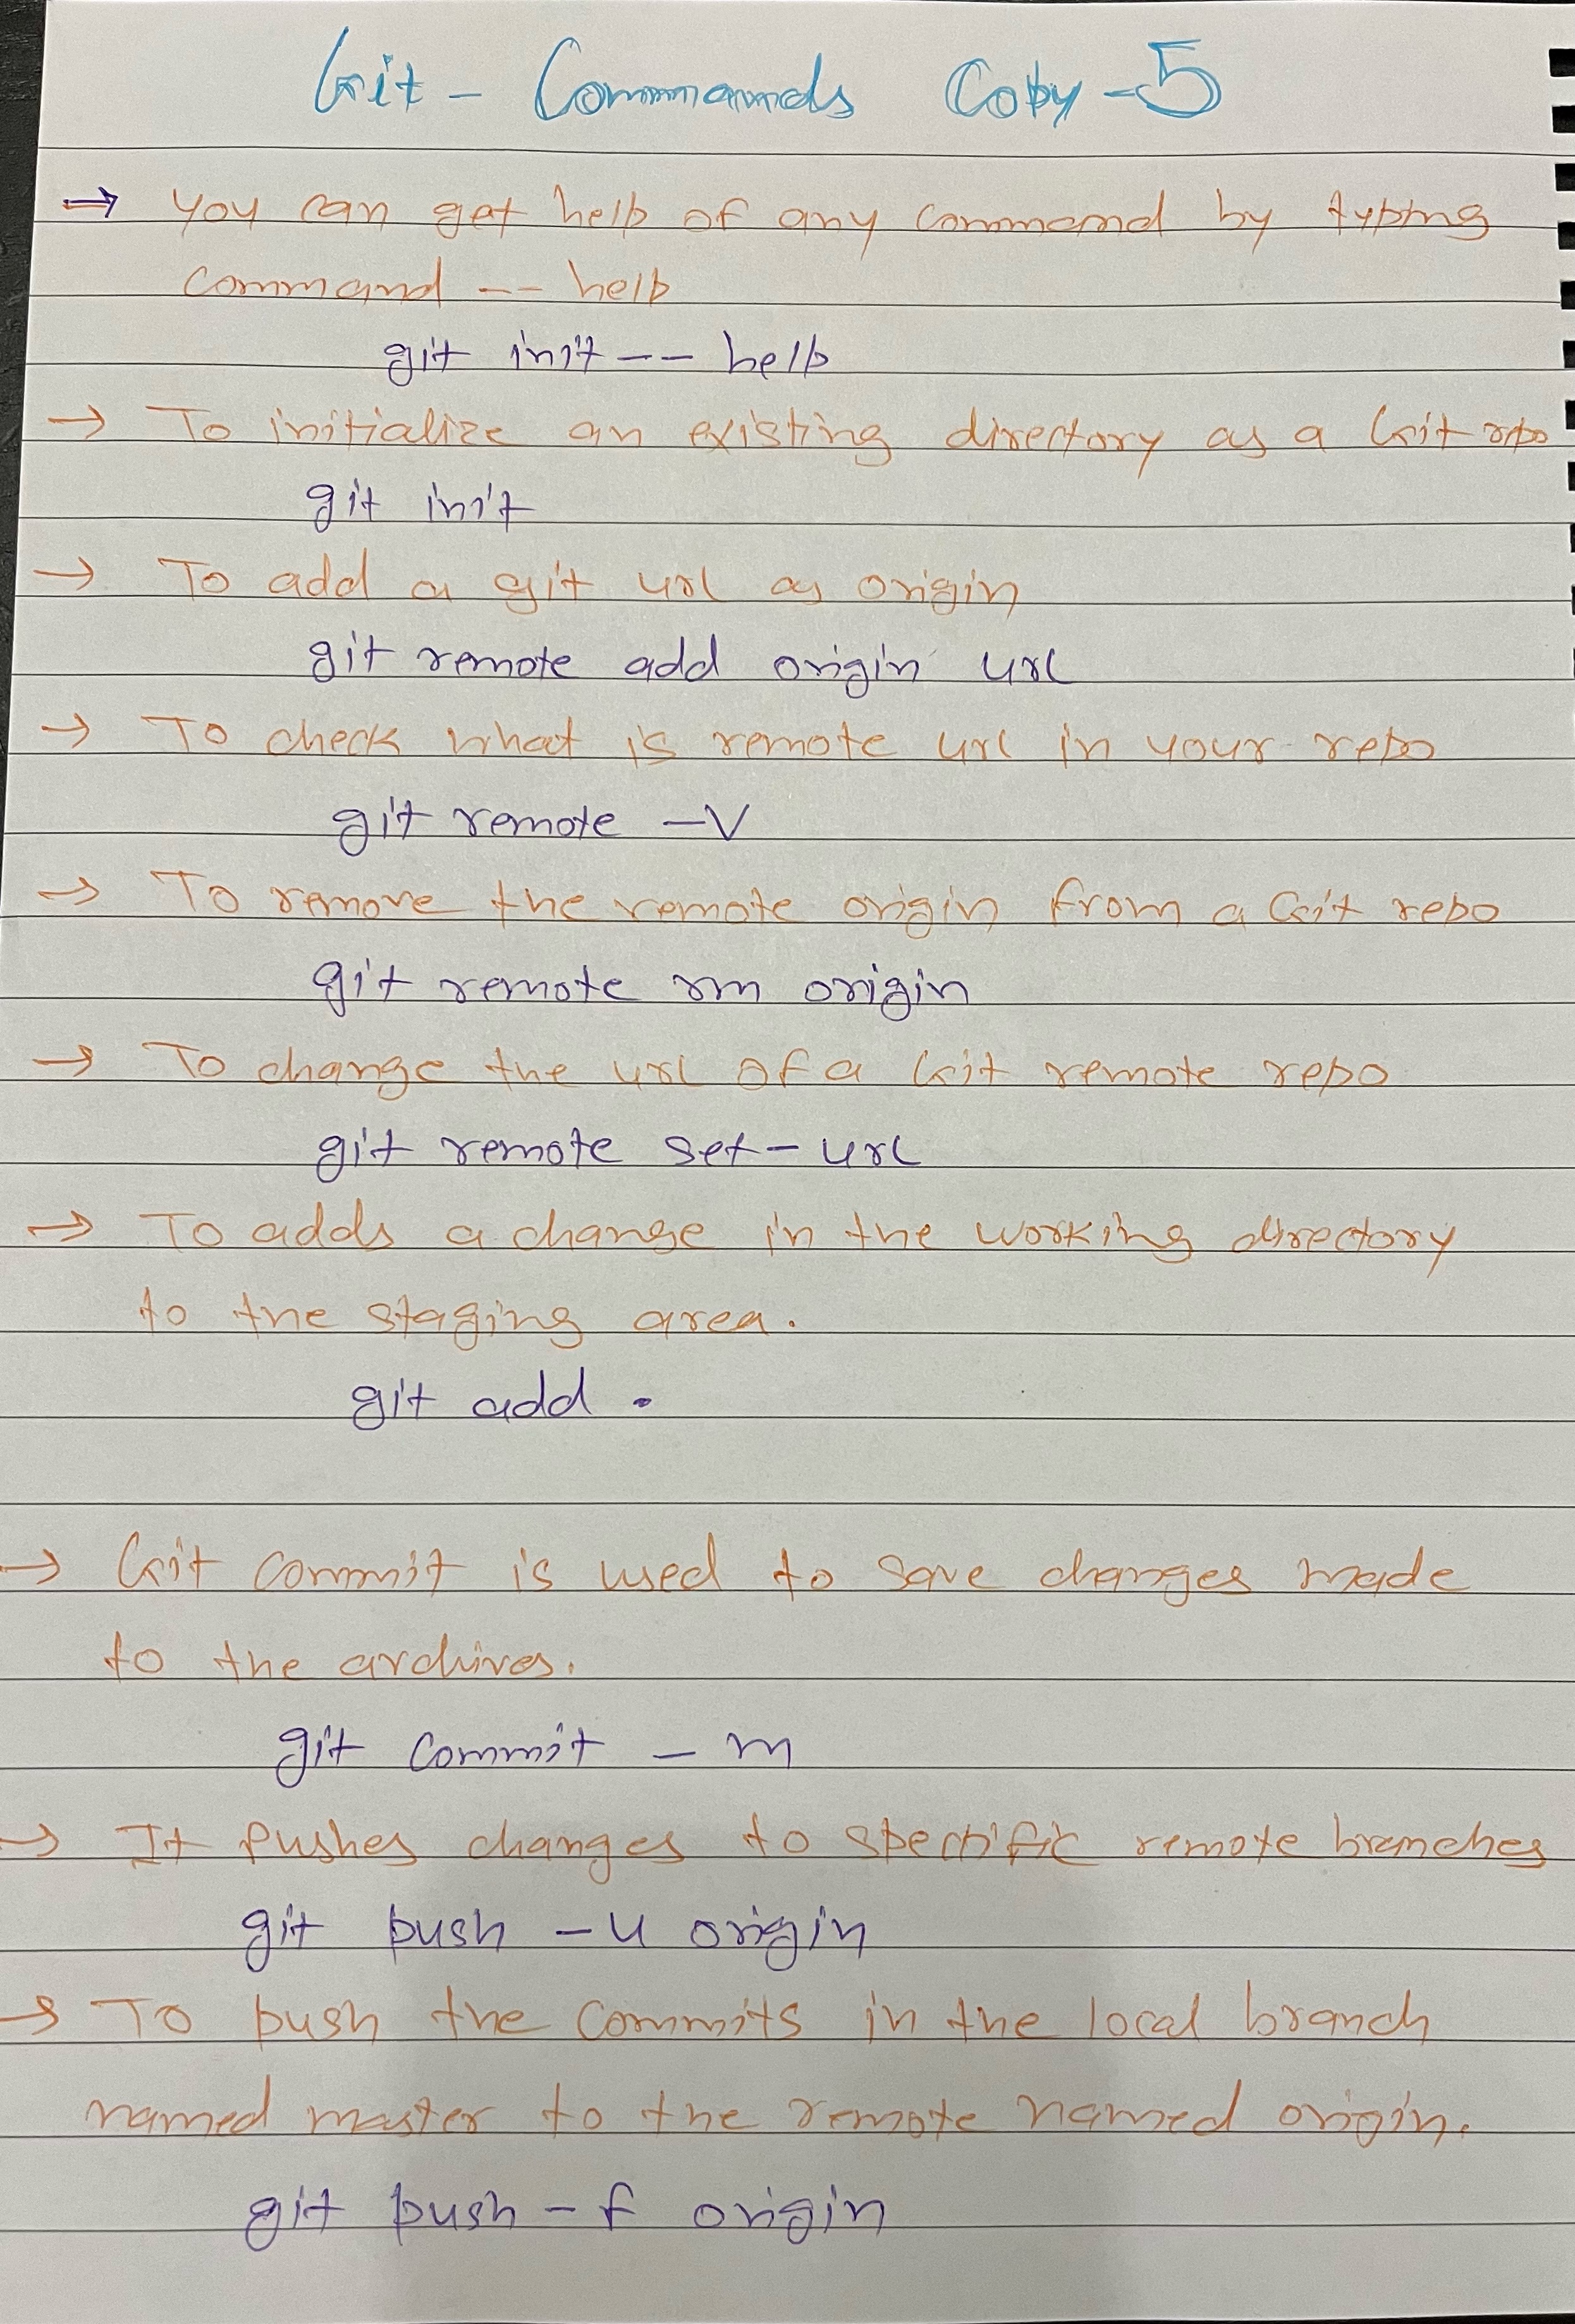 Git - Commands Copy -5
→ you can get help of any command by typing
command -- help
git init -- help
→ To initialize an existing directory as a Git repo
git init
→ To add a git url as origin
git remote add origin url
→ To check what is remote url in your repo
git remote -v
→ To remove the remote origin from a Git repo
git remote rm origin
→ To change the url of a Git remote repo
git remote set-url
→ To adds a change in the working directory
to the staging area.
git add .
→ Git commit is used to save changes made
to the archives.
git commit -m
→ It pushes changes to specific remote branches
git push -u origin
→ To push the commits in the local branch
named master to the remote named origin.
git push -f origin